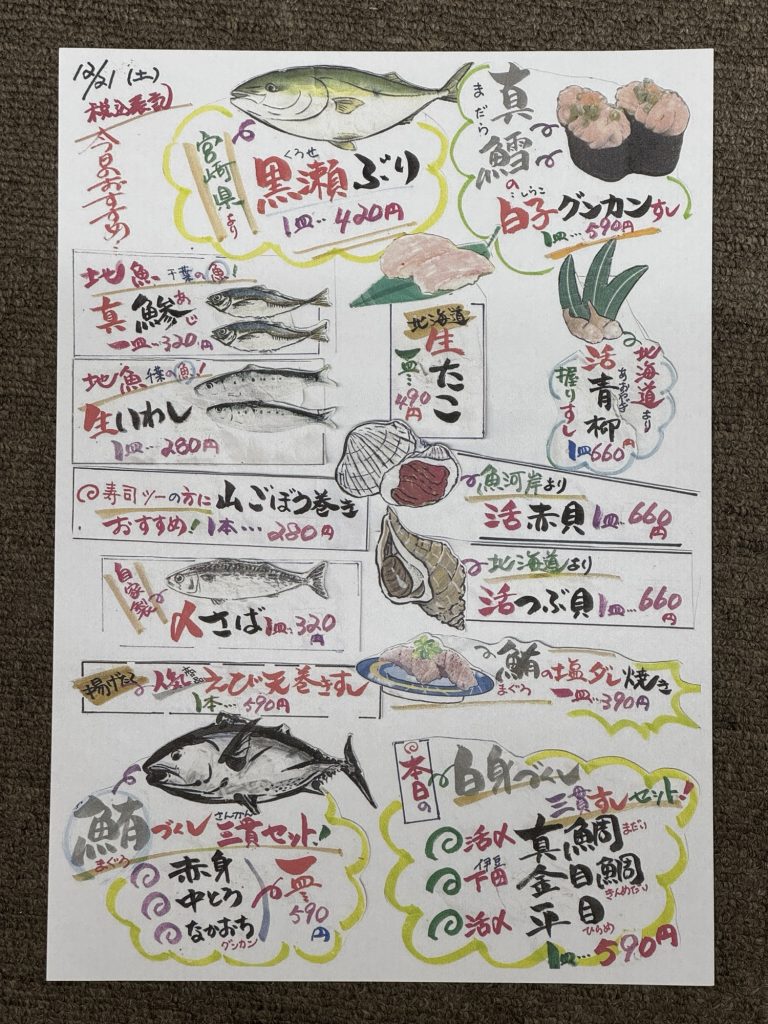 12/21(土)
税込表示
今日のおすすめ!
宮崎県より
くろせ
黒瀬ぶり
1皿…420円
まだら
真鱈の
しらこ
白子グンカンすし
1皿…590円
地魚、千葉の魚!
真鯵
あじ
一皿…320円
地魚 千葉の魚!
生いわし
1皿…280円
北海道
生たこ
一皿…490円
北海道より
活青柳
あおやぎ
握りすし
1皿660円
寿司ツーの方に
おすすめ!
山ごぼう巻き
1本…280円
魚河岸より
活赤貝 1皿…660円
自家製
〆さば 1皿…320円
北海道より
活つぶ貝 1皿…660円
揚げたて
人気商品
えび天巻きすし
1本…590円
鮪の塩ダレ焼き
まぐろ
一皿…390円
鮪づくし三貫セット!
まぐろ
さんかん
赤身
中とろ
なかおち
グンカン
一皿…590円
本日の
白身づくし
三貫すしセット!
活〆 真鯛 まだい
伊豆
下田 金目鯛 きんめだい
活〆 平目 ひらめ
1皿…590円